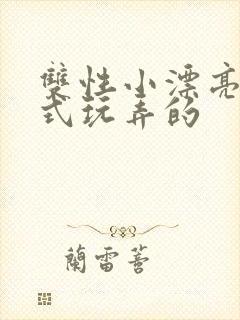 雙性小漂亮
式玩弄的
蘭雷著